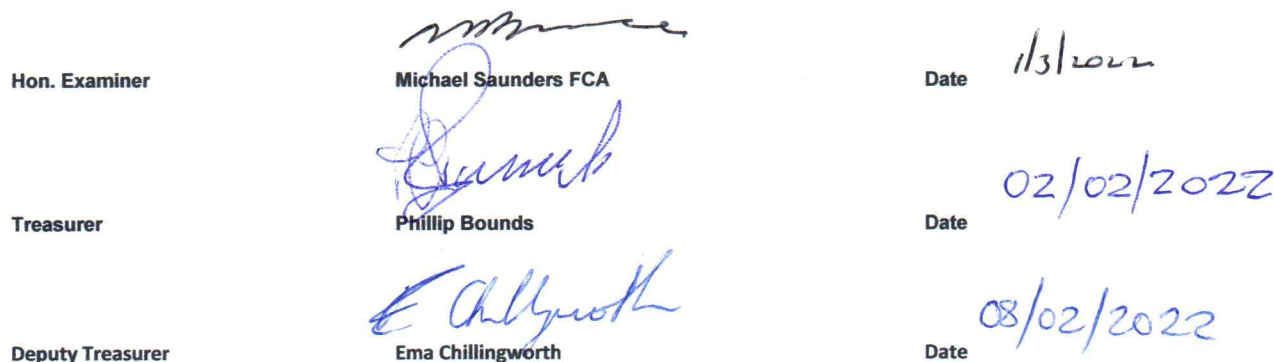 Hon. Examiner Michael Saunders FCA Date 1/3/2022
Treasurer Phillip Bounds Date 02/02/2022
Deputy Treasurer E Chillingworth Ema Chillingworth Date 08/02/2022